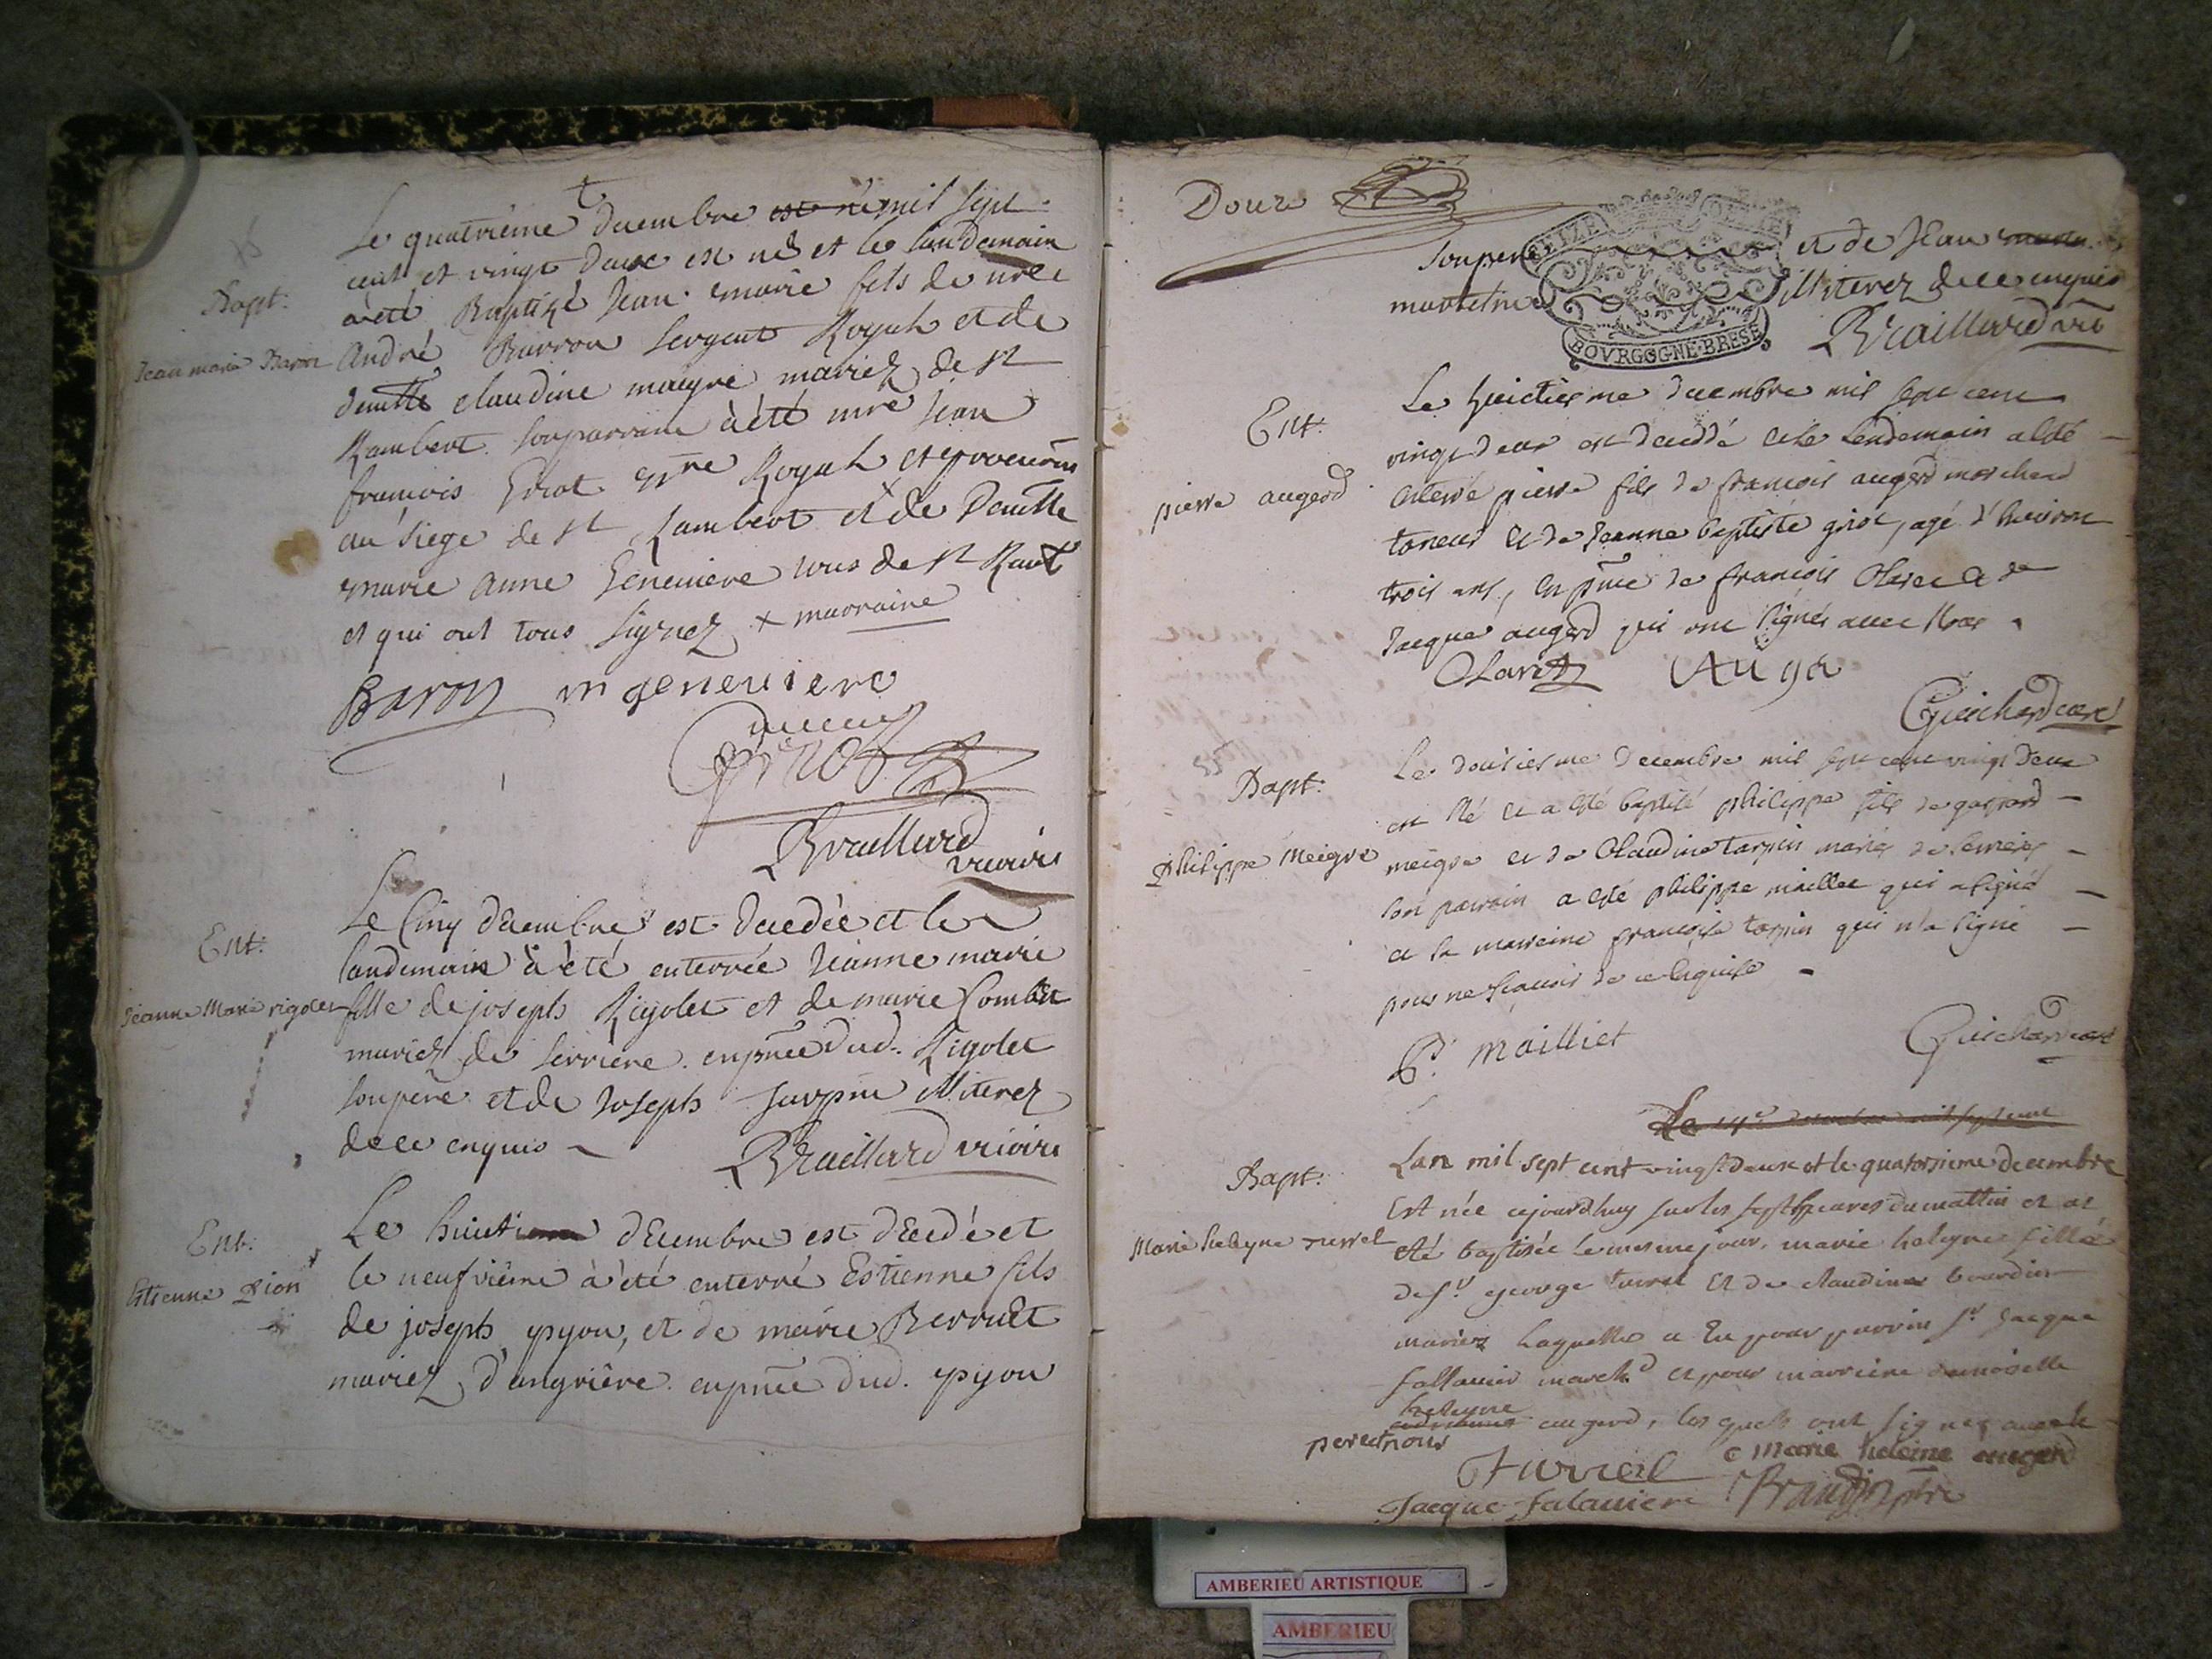 Le quatriéme decembre est né mil sept
cent et vingt deux est né et le landemain
a été Baptizé Jean marie fils de mre
Bapt:
Jean marie Baron
André Barron sergent Royal et de
demlle claudine maigre mariez de st
Rambert. son parrain à été mre Jean
françois Grot nre Royal et procureur
au siege de st Rambert et de Demlle
marie anne Genevieve tous de st Rambt
et qui ont tous signez x marraine
Baron m genevieve
Grot
Braillard
vicaire
Ent:
Jeanne Marie rigolet
Le Cinq decembre est decedée et le
landemain à été enterrée Jeanne marie
fille de joseph Rigolet et de marie Combet
mariez de serriere. en pnce dud. Rigolet
son pere et de Joseph illiterez
de ce enquis
Braillard vicaire
Ent:
Etienne pion
Le huict decembre est decedé et
le neufviéme à été enterré Estienne fils
de joseph pyon, et de marie Berrudt
mariez d'angriére. en pnce dud. pyon
Douze
son pere et de Jean
illiterez de ce enquis
SEIZE
BOVRGOGNE BRESSE
Braillard vre
Ent:
pierre augerd
Le huictiesme decembre mil sept cent
vingt deux est decedé et le lendemain a esté
enterré pierre fils de francois augerd marchand
taneur et de Jeanne baptiste grot, agé d'environ
trois ans, en pnce de francois Claret et de
Jacque augerd qui ont signés avec nous.
Claret Auge
Guichard curé
Bapt:
philippe Meigre
Le dousiesme decembre mil sept cent vingt deux
est né et a esté baptisé philippe fils de gaspard
meigre et de Claudine tarpin mariés de
son parrain a esté philippe miellet qui a signé
et sa marreine françoise tarpin qui n'a signé
pour ne scavoir de ce enquise
P. Mailliet
Guichard curé
Le 14e decembre mil sept cent
Bapt:
Marie heleyne turrel
Lan mil sept cent vingt deux et le quatorsieme decembre
est née cejourdhuy sur les sept heures du mattin et at
eté baptisée le mesme jour, marie heleyne fille
de sr george turrel et de claudine bourdin
mariez laquelle a eu pour parrin sr Jacque
fallavier marchd et pour marreine demoiselle
heleyne
augerd, les quels ont signez avec le
pere et nous
Turrel marie heleine augerd
Jacque falavier ptre
AMBERIEU ARTISTIQUE
AMBERIEU